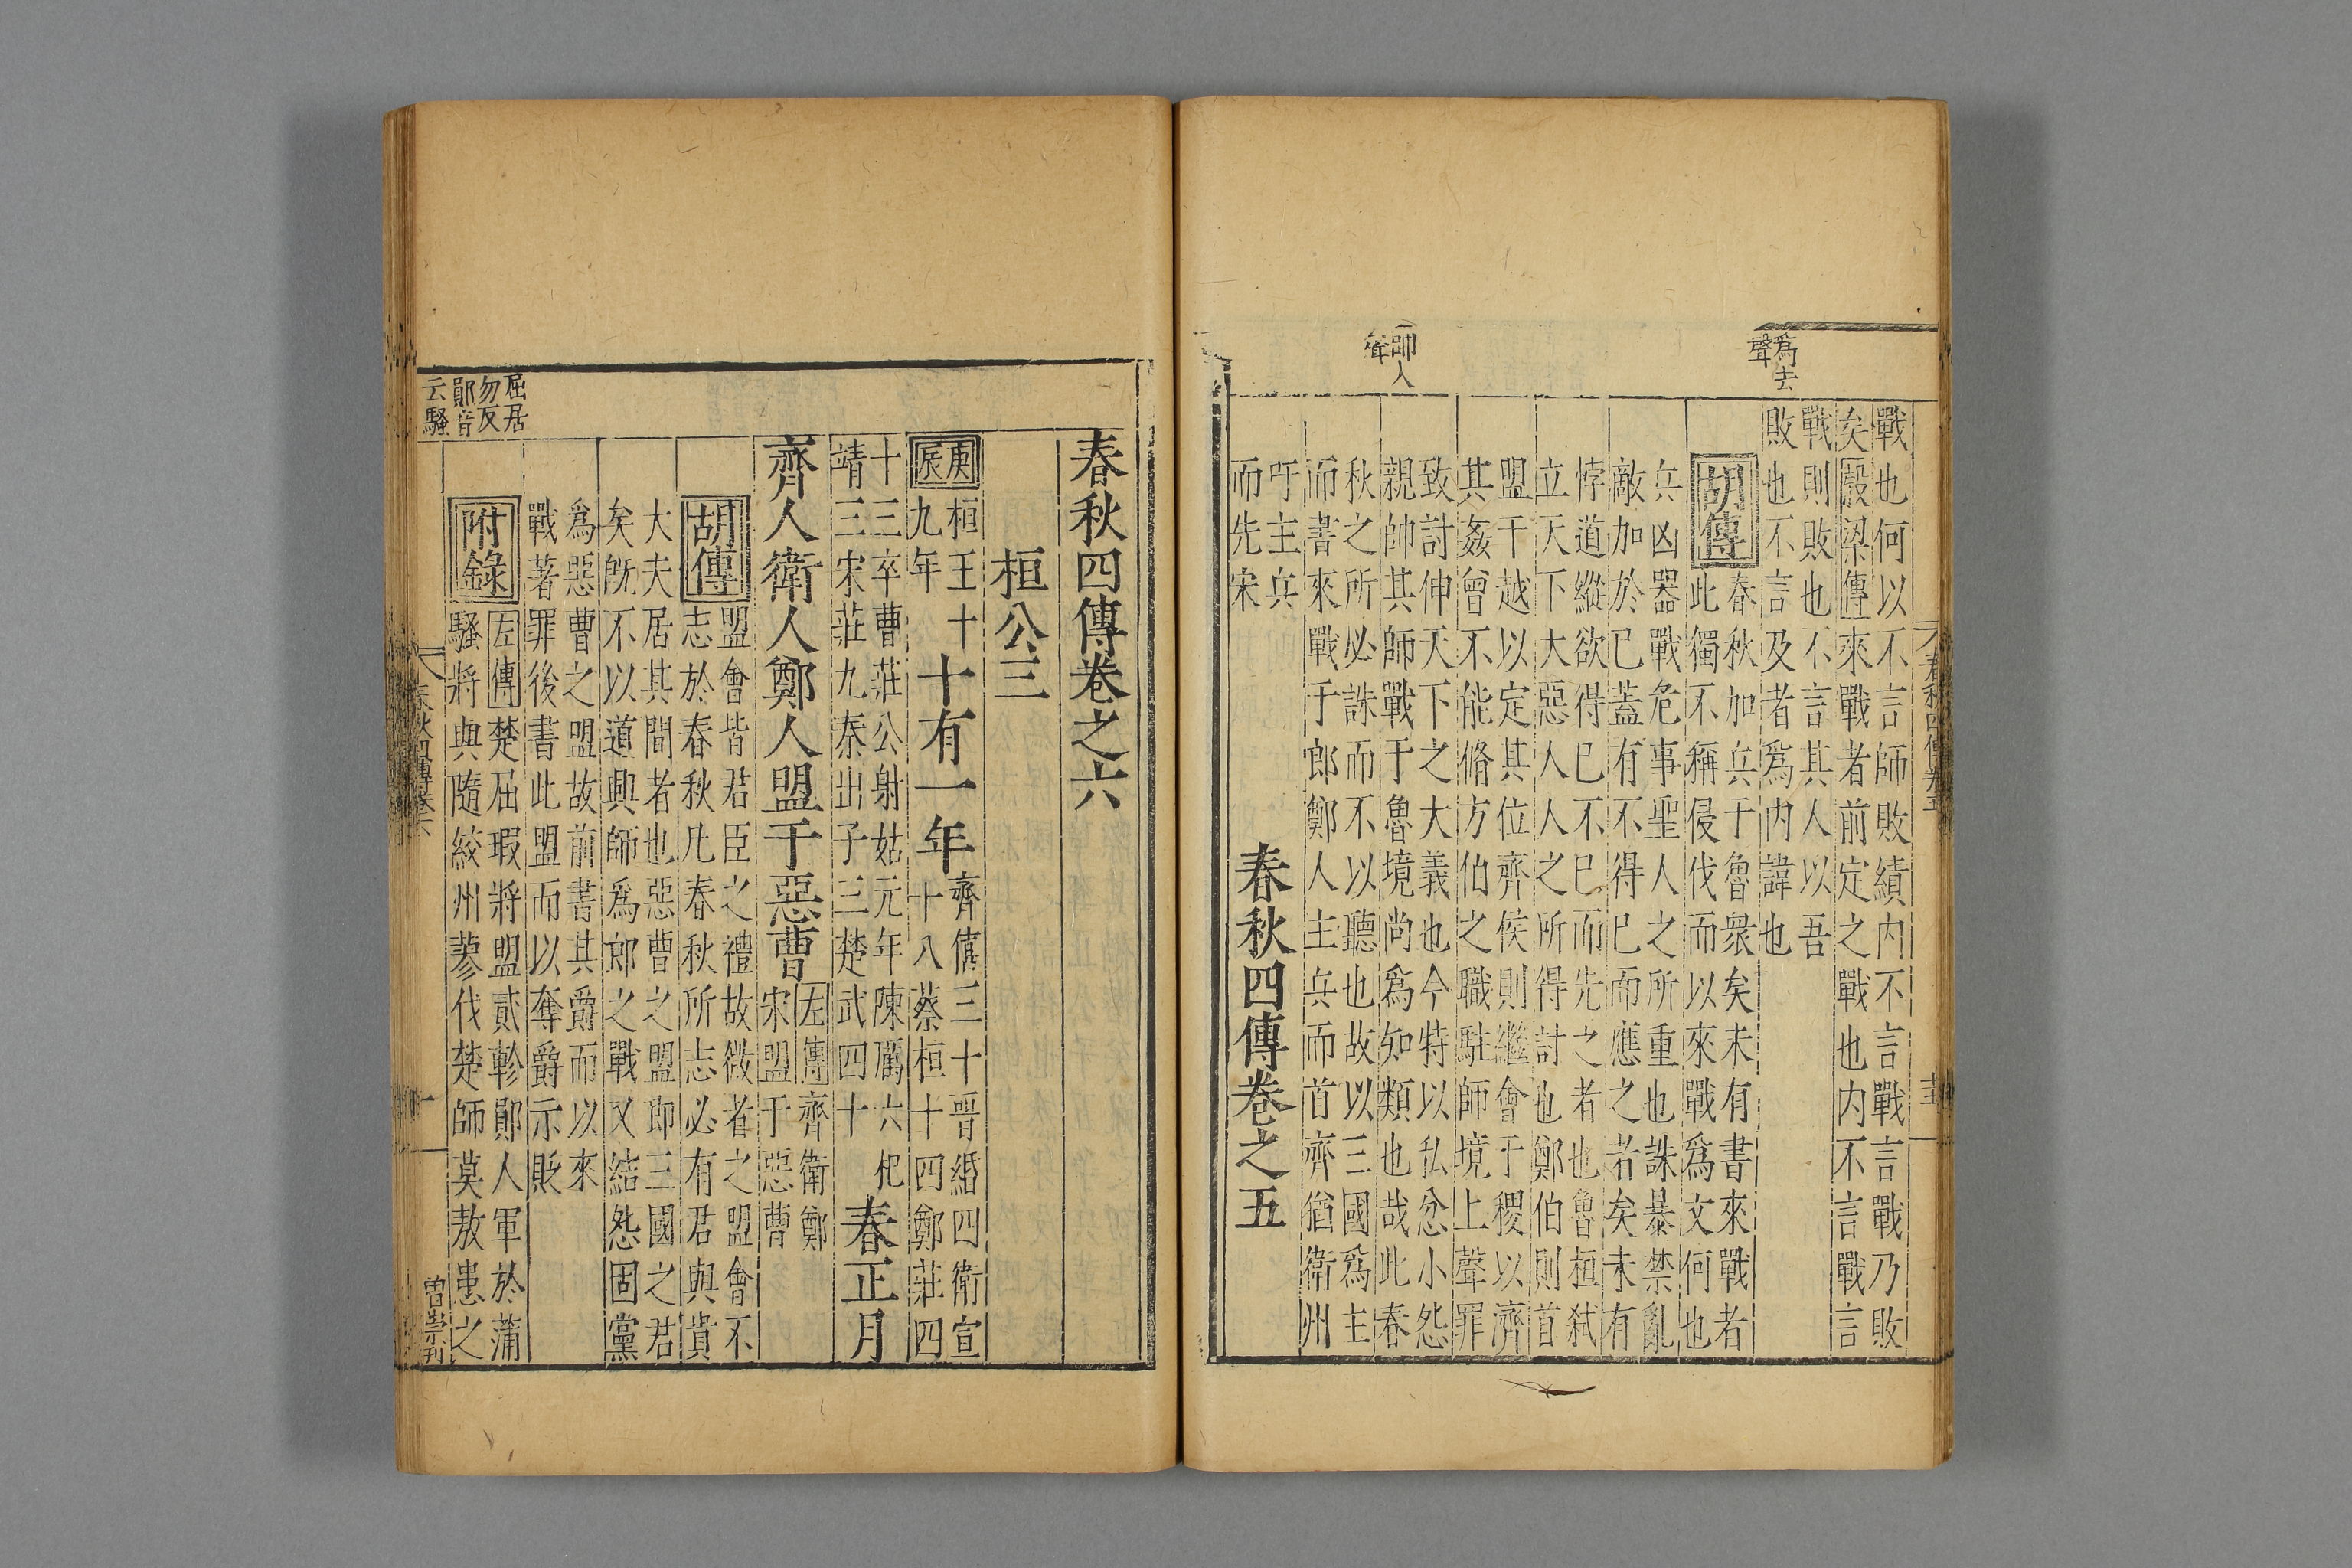 爲去
聲
帥入
聲
戰也何以不言師敗績内不言戰言戰乃敗
矣穀梁傳來戰者前定之戰也内不言戰言
戰則敗也不言其人以吾
敗也不言及者爲内諱也
胡傳
春秋加兵于魯衆矣未有書來戰者
此獨不稱侵伐而以來戰爲文何也
兵凶器戰危事聖人之所重也誅暴禁亂
敵加於已蓋有不得已而應之者矣未有
悖道縱欲得已不已而先之者也魯桓弑
立天下大惡人人之所得討也鄭伯則首
盟于越以定其位齊侯則繼會于稷以濟
其姦曾不能脩方伯之職駐師境上聲罪
致討伸天下之大義也今特以私忿小怨
親帥其師戰于魯境尚爲知類也哉此春
秋之所必誅而不以聽也故以三國爲主
而書來戰于郎鄭人主兵而首齊猶衛州
吁主兵
而先宋
春秋四傳卷之五
春秋四傳卷之六
桓公三
庚辰
桓王十
九年
十有一年
齊僖三十晉緡四衛宣
十八蔡桓十四鄭莊四
十三卒曹莊公射姑元年陳厲六杞
靖三宋莊九秦出子三楚武四十
春正月
齊人衛人鄭人盟于惡曹
左傳齊衛鄭
宋盟于惡曹
胡傳
盟會皆君臣之禮故微者之盟會不
志於春秋凡春秋所志必有君與貴
大夫居其間者也惡曹之盟即三國之君
矣旣不以道興師爲郎之戰又結怨固黨
爲惡曹之盟故前書其爵而以來
戰著罪後書此盟而以奪爵示貶
附錄
左傳楚屈瑕將盟貳軫鄖人軍於蒲
騷將與隨絞州蓼伐楚師莫敖患之
屈居
勿反
鄖音
云騷
春秋四傳卷六